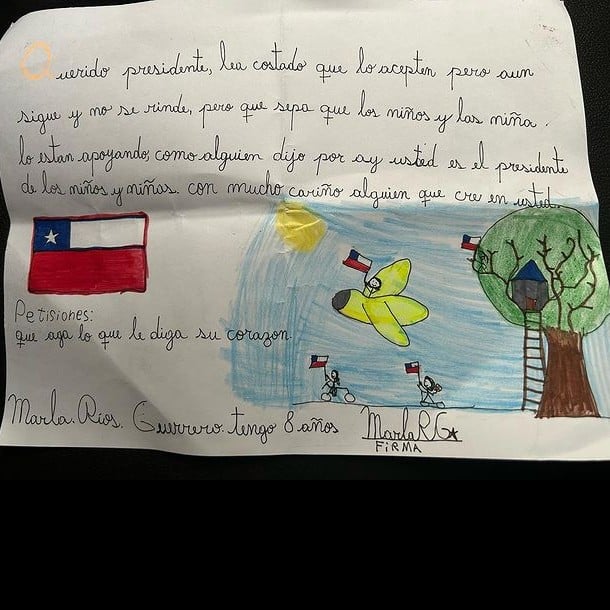 Querido presidente, lea costado que lo acepten pero aun
sigue y no se rinde, pero que sepa que los niños y las niña.
lo estan apoyando, como alguien dijo por ay usted es el presidente
de los niños y niñas. con mucho cariño alguien que cre en usted.
Petisiones:
que aga lo que le diga su corazon.
Marla. Ríos. Guerrero. tengo 8 años
MarlaRG
FiRMA